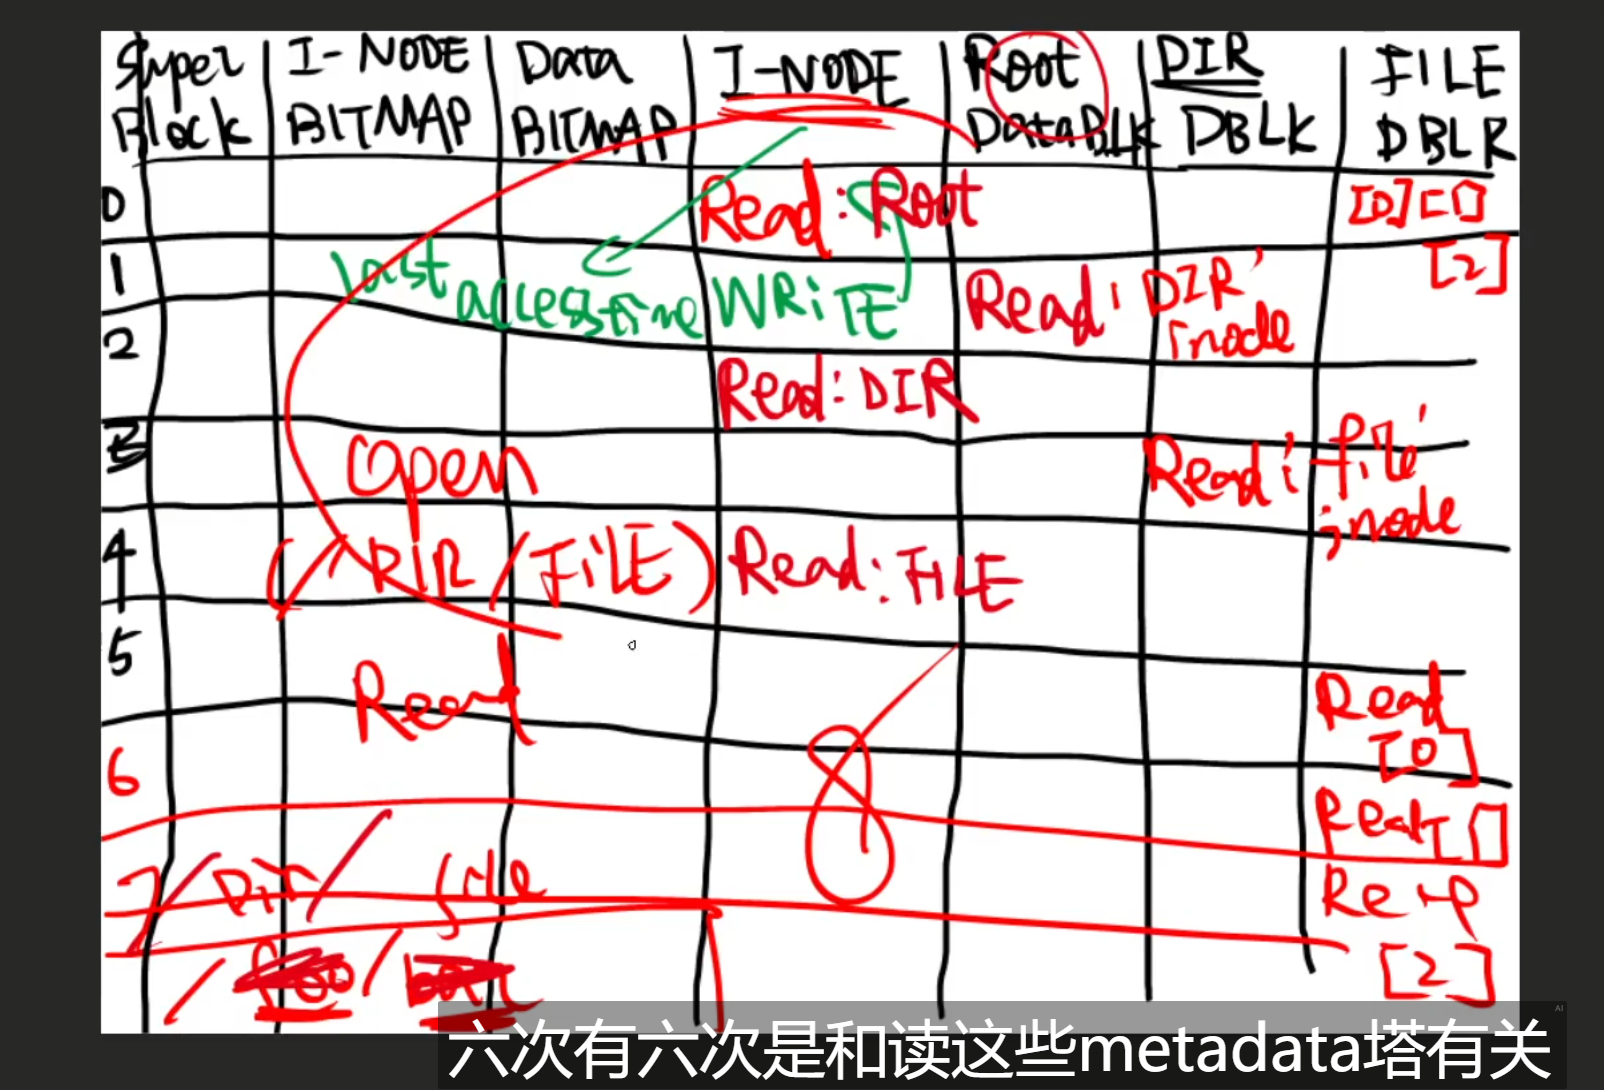 Super Block
I-NODE BITMAP
Data BITMAP
I-NODE
Root DataBLK
DIR DBLK
FILE DBLR
0
Read: Root
[0] [1]
[2]
1
last accesstime WRiTE
Read: DIR inode
2
Read: DIR
3
Open
Read: file inode
4
(/DIR/FiLE)
Read: FILE
5
Read
Read [0]
6
8
7
/Dir/file
[2]
六次有六次是和读这些metadata塔有关
AI